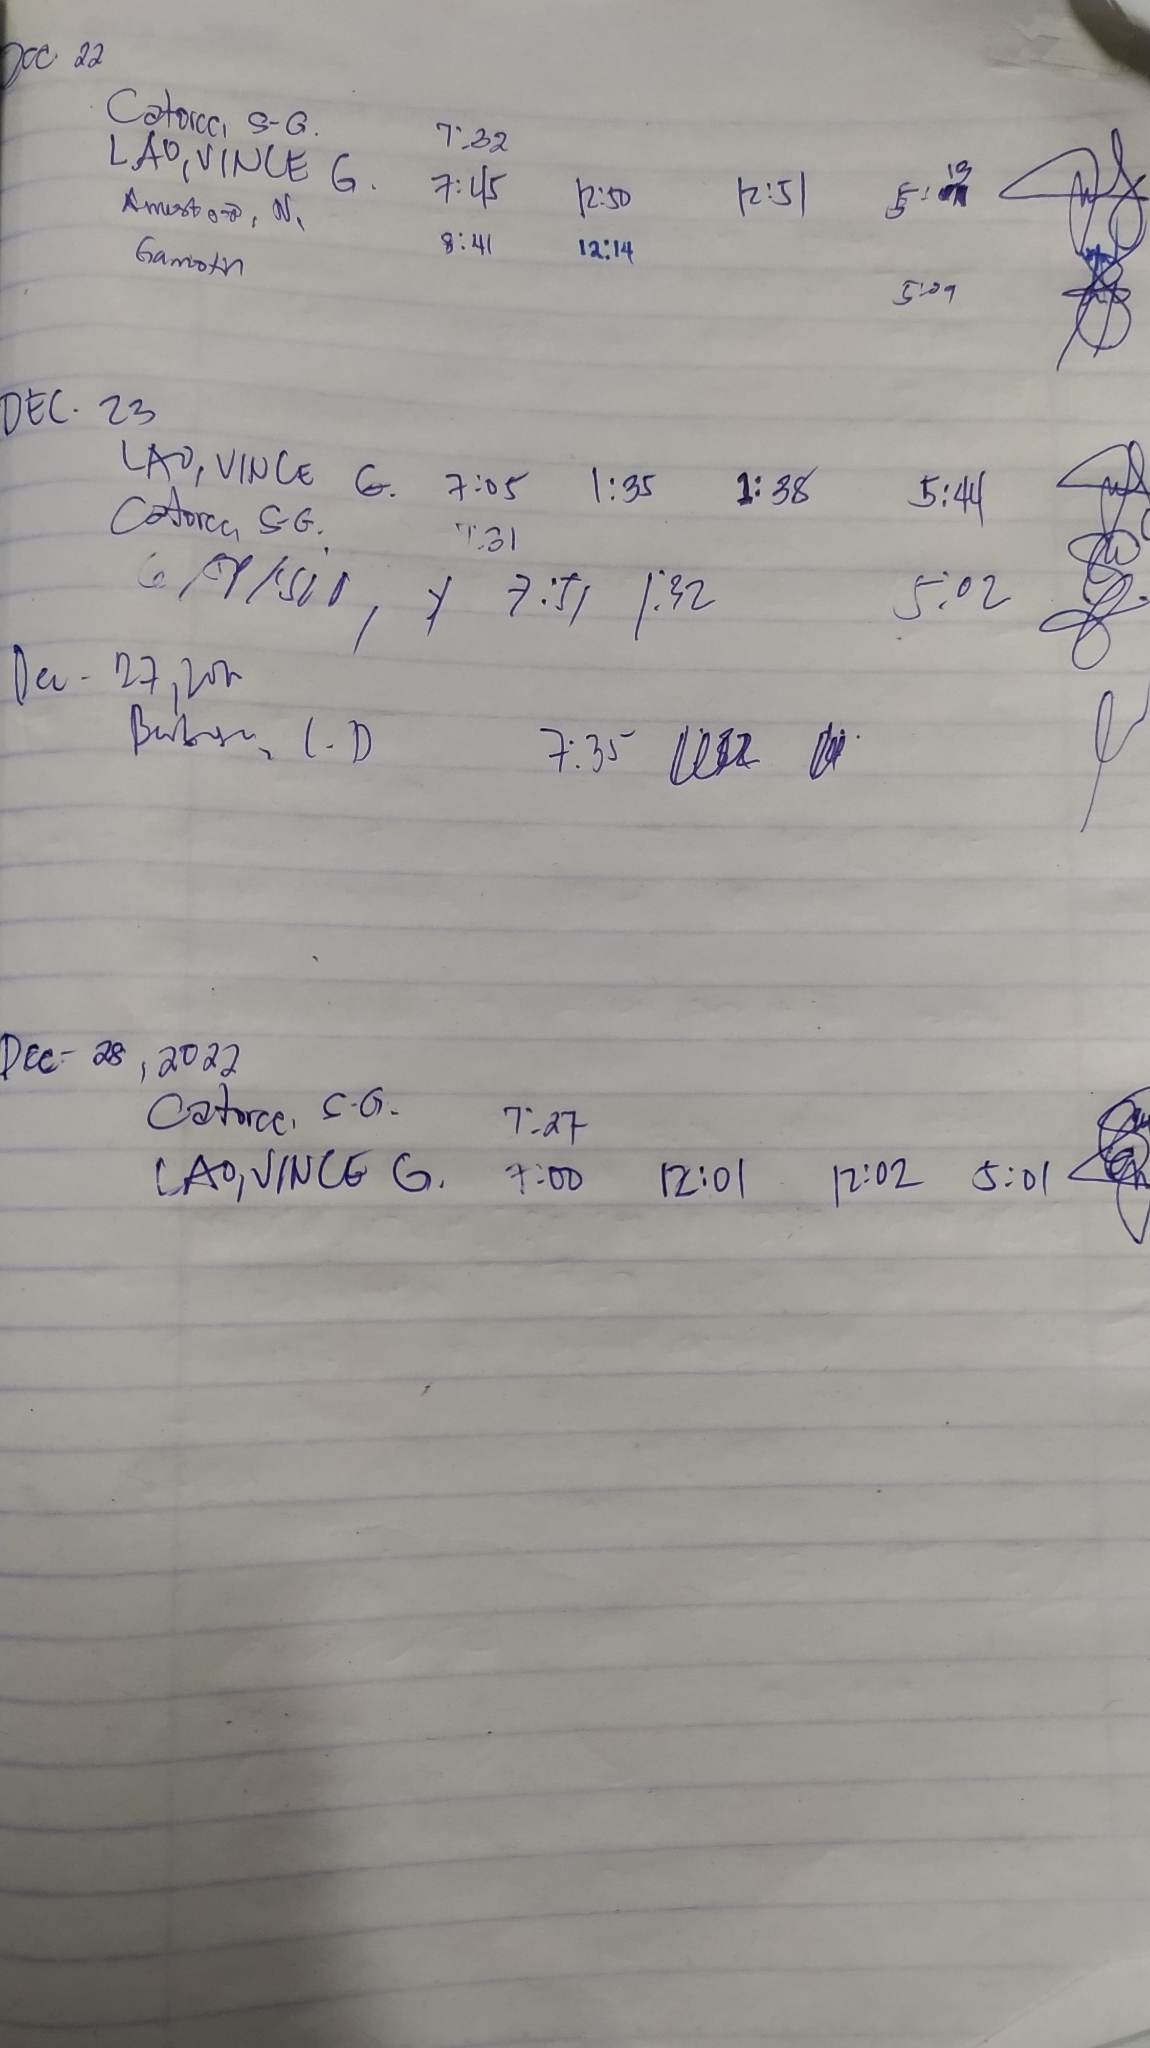 Dec. 22
Catorce, S-G. 7:32
LAO, VINCE G. 7:45 12:50 12:51 5:13
N. 8:41 12:14
Gamotin 5:09
DEC. 23
LAO, VINCE G. 7:05 1:35 1:38 5:44
Catorce, S-G. 7:31
, Y 7:51 1:32 5:02
Dec - 27,
7:35
Dec - 28, 2022
Catorce, S-G. 7:27
LAO, VINCE G. 7:00 12:01 12:02 5:01